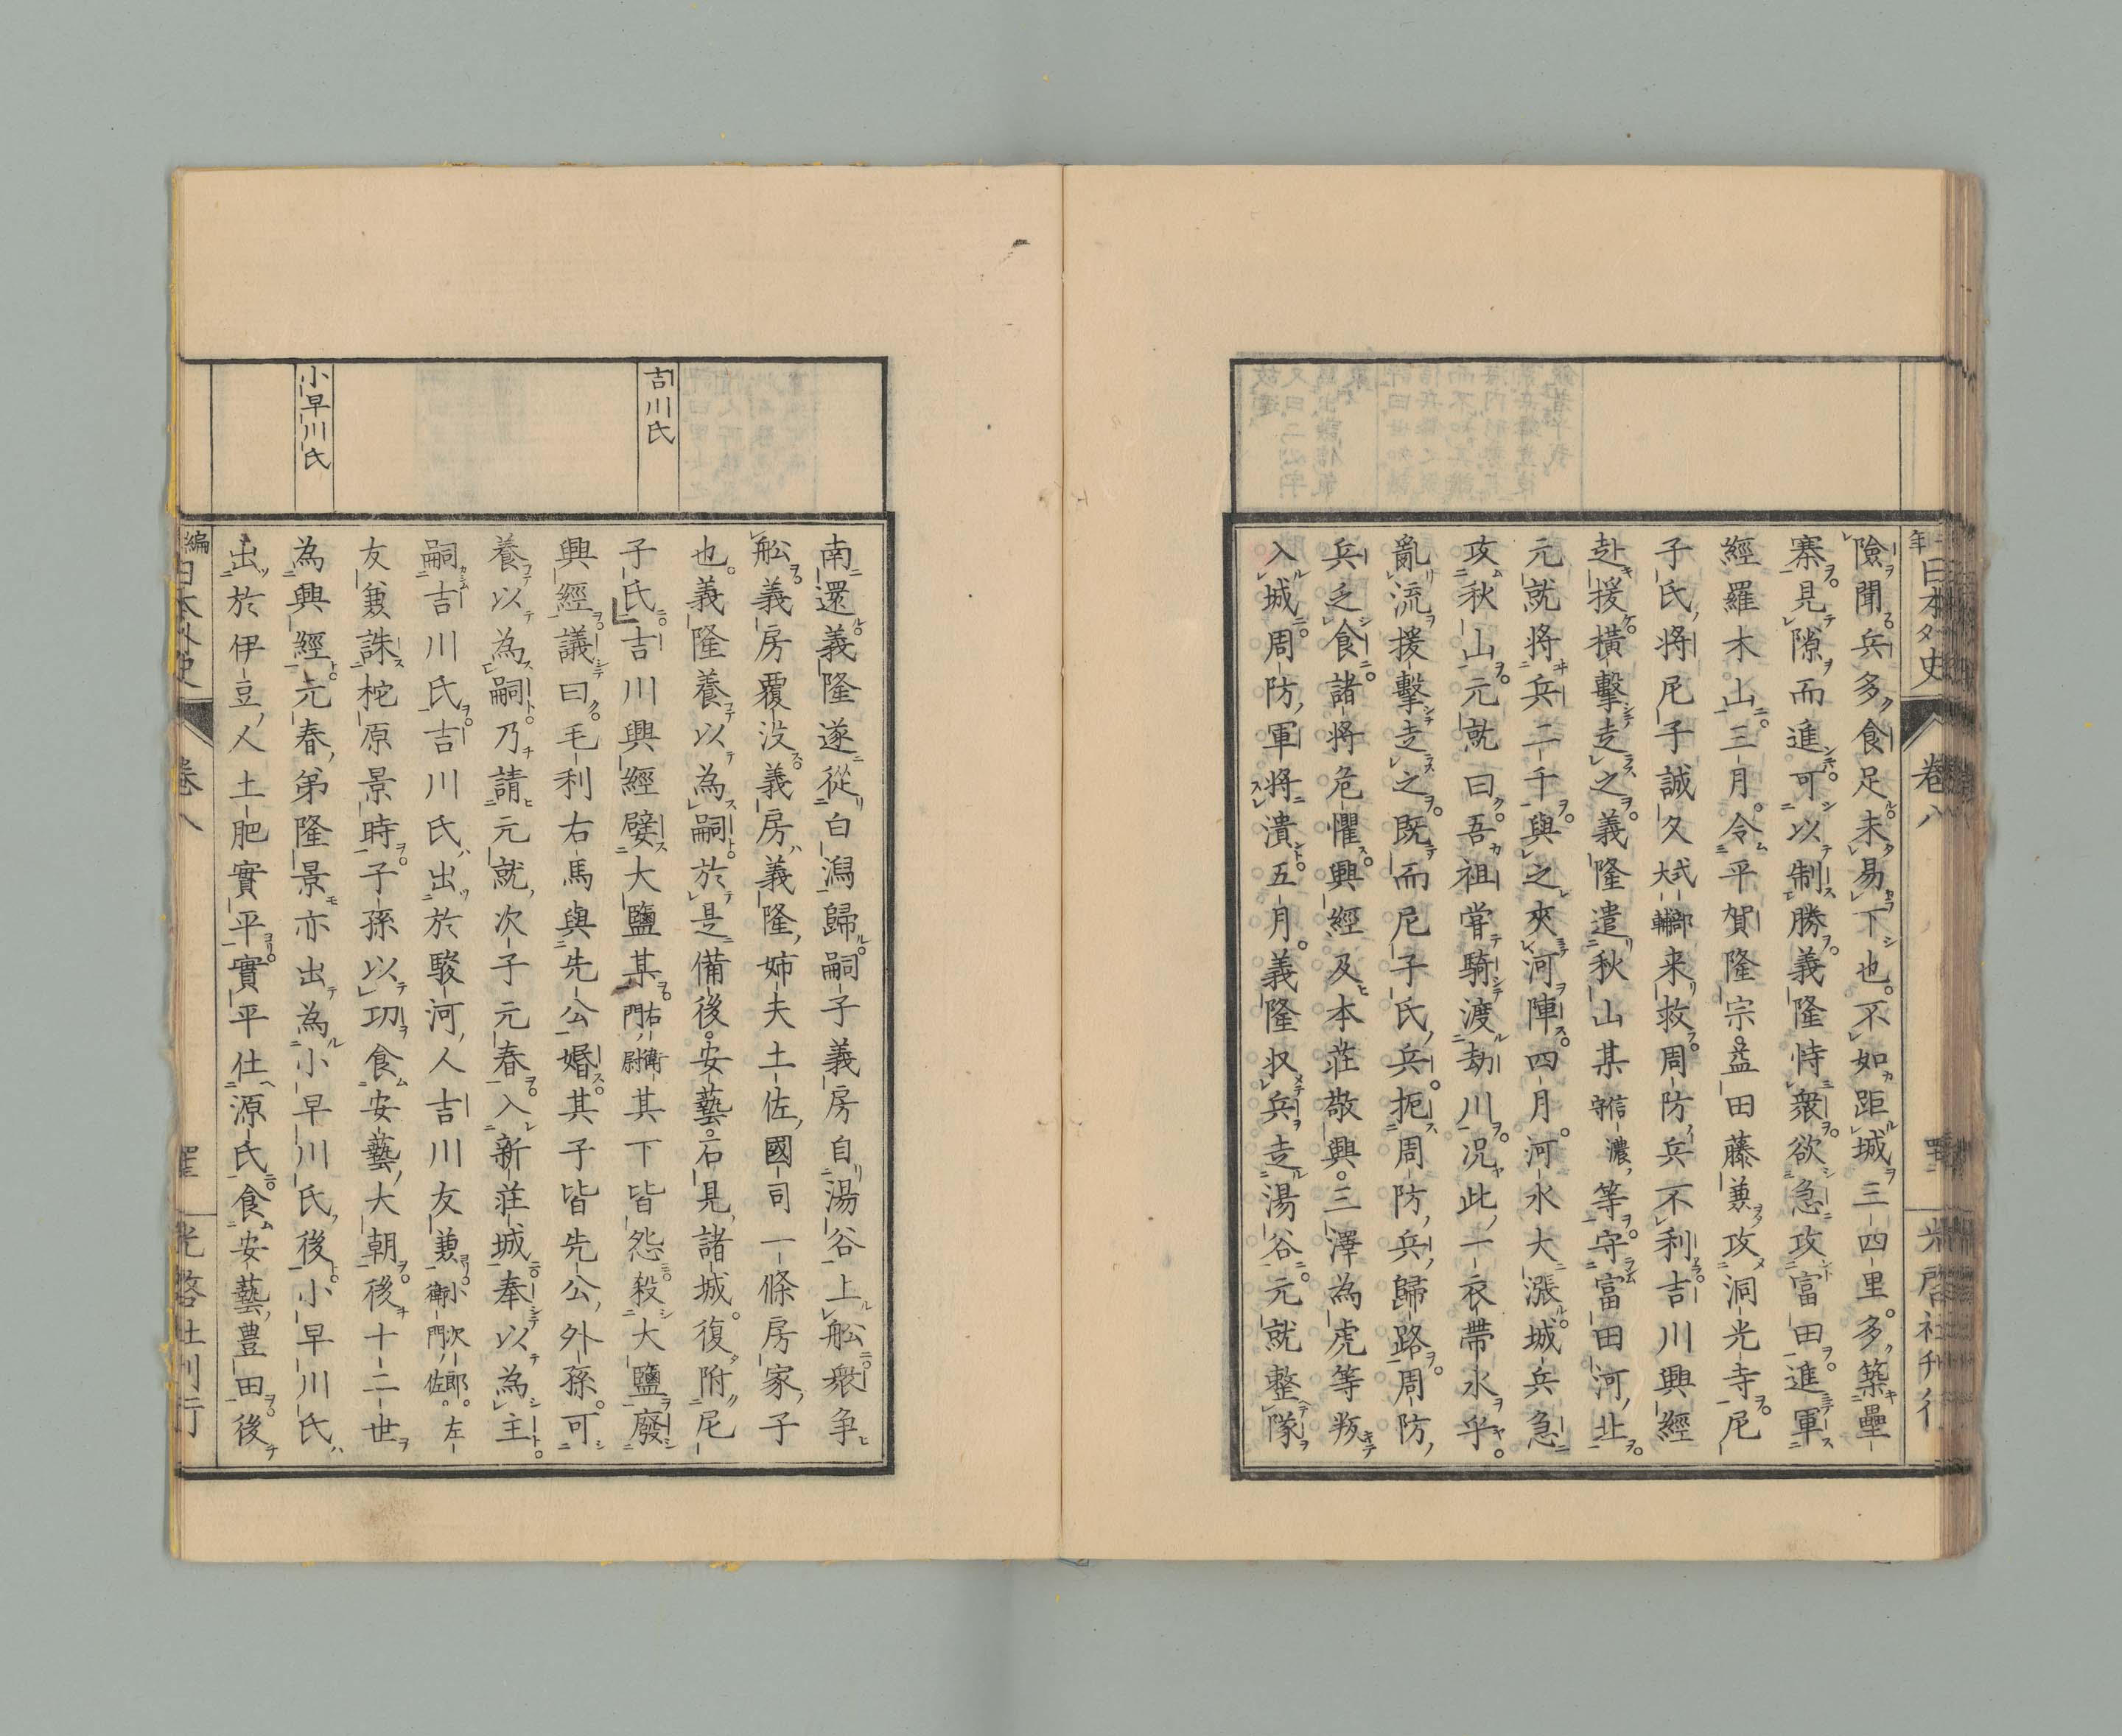 險聞兵多食足未易下也不如距城三四里多築壘
寨見隙而進可以制勝義隆恃衆欲急攻富田進軍
經羅木山三月令平賀隆宗益田藤兼攻洞光寺尼
子氏將尼子誠久式部大輔来救周防兵不利吉川興經
赴援橫擊走之義隆遣秋山某信濃守等守富田河北
元就將兵二千與之夾河陣四月河水大漲城兵急
攻秋山元就曰吾祖嘗騎渡劫川况此一衣帶水乎
亂流援擊走之既而尼子氏兵扼周防兵歸路周防
兵乏食諸將危懼興經及本莊敬興三澤為虎等叛
入城周防軍將潰五月義隆収兵走湯谷元就整隊
卷八
光啓社刊行
吉川氏
小早川氏
南還義隆遂從白潟歸嗣子義房自湯谷上舩衆争
舩義房覆没義房義隆姉夫土佐國司一條房家子
也義隆養以為嗣於是備後安藝石見諸城復附尼
子氏吉川興經嬖大鹽某右衛門尉其下皆怨殺大鹽廢
興經議曰毛利右馬與先公婚其子皆先公外孫可
養以為嗣乃請元就次子元春入新莊城奉以為主
嗣吉川氏吉川氏出於駿河人吉川友兼小次郎左衛門佐
友兼誅梶原景時子孫以功食安藝大朝後十二世
為興經元春弟隆景亦出為小早川氏後小早川氏
出於伊豆人土肥實平實平仕源氏食安藝豊田後
編日本外史
卷八
光啓社刊行